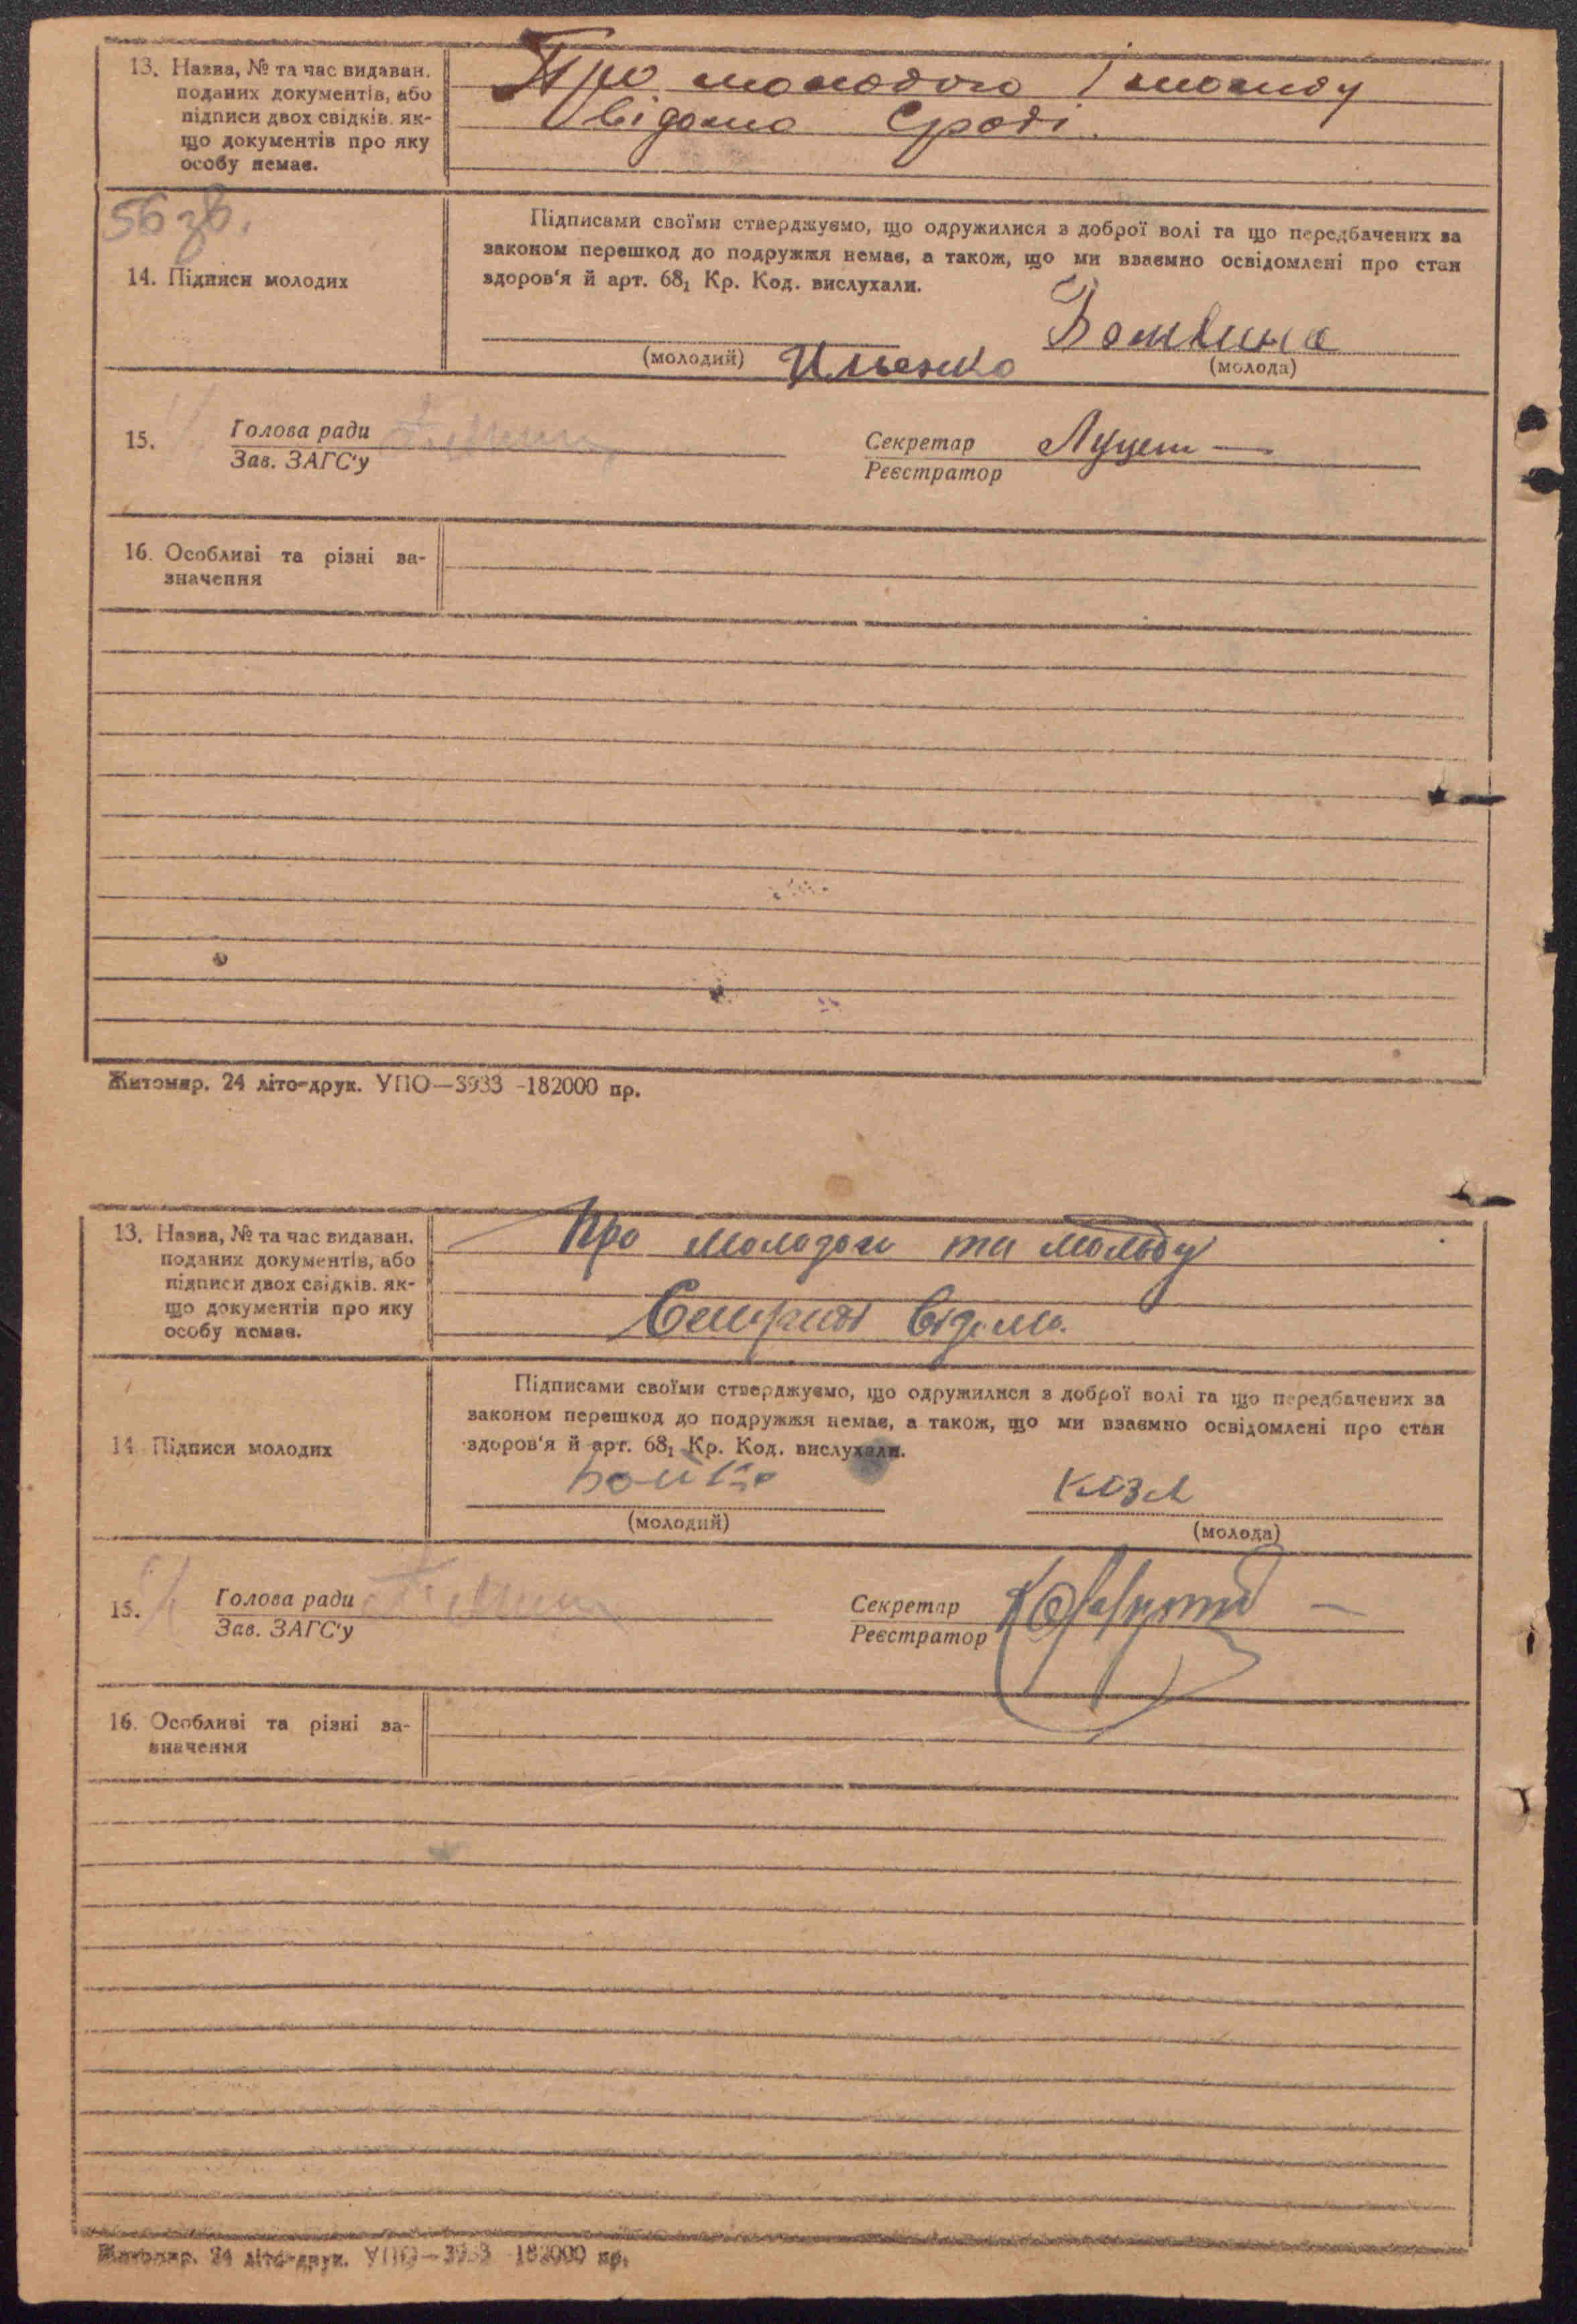 13. Назва, № та час видаван.
поданих документів, або
підписи двох свідків. як-
що документів про яку
особу немає.
Про молодого і молоду
відомо Сраді.
56 зв.
14. Підписи молодих
Підписами своїми стверджуємо, що одружилися з доброї волі та що передбачених за
законом перешкод до подружжя немає, а також, що ми взаємно освідомлені про стан
здоров'я й арт. 68₁ Кр. Код. вислухали.
(молодий) Ильенко
(молода)
15. Голова ради
Зав. ЗАГС'у
Секретар
Реєстратор
16. Особливі та різні за-
значення
Житомир. 24 літо-друк. УПО—3933 -182000 пр.
13. Назва, № та час видаван.
поданих документів, або
підписи двох свідків. як-
що документів про яку
особу немає.
Про молодого та молоду
Сельраді відомо.
14. Підписи молодих
Підписами своїми стверджуємо, що одружилися з доброї волі та що передбачених за
законом перешкод до подружжя немає, а також, що ми взаємно освідомлені про стан
здоров'я й арт. 68₁ Кр. Код. вислухали.
(молодий)
(молода)
15. Голова ради
Зав. ЗАГС'у
Секретар
Реєстратор
16. Особливі та різні за-
значення
Житомир. 24 літо-друк. УПО—3933 182000 пр.